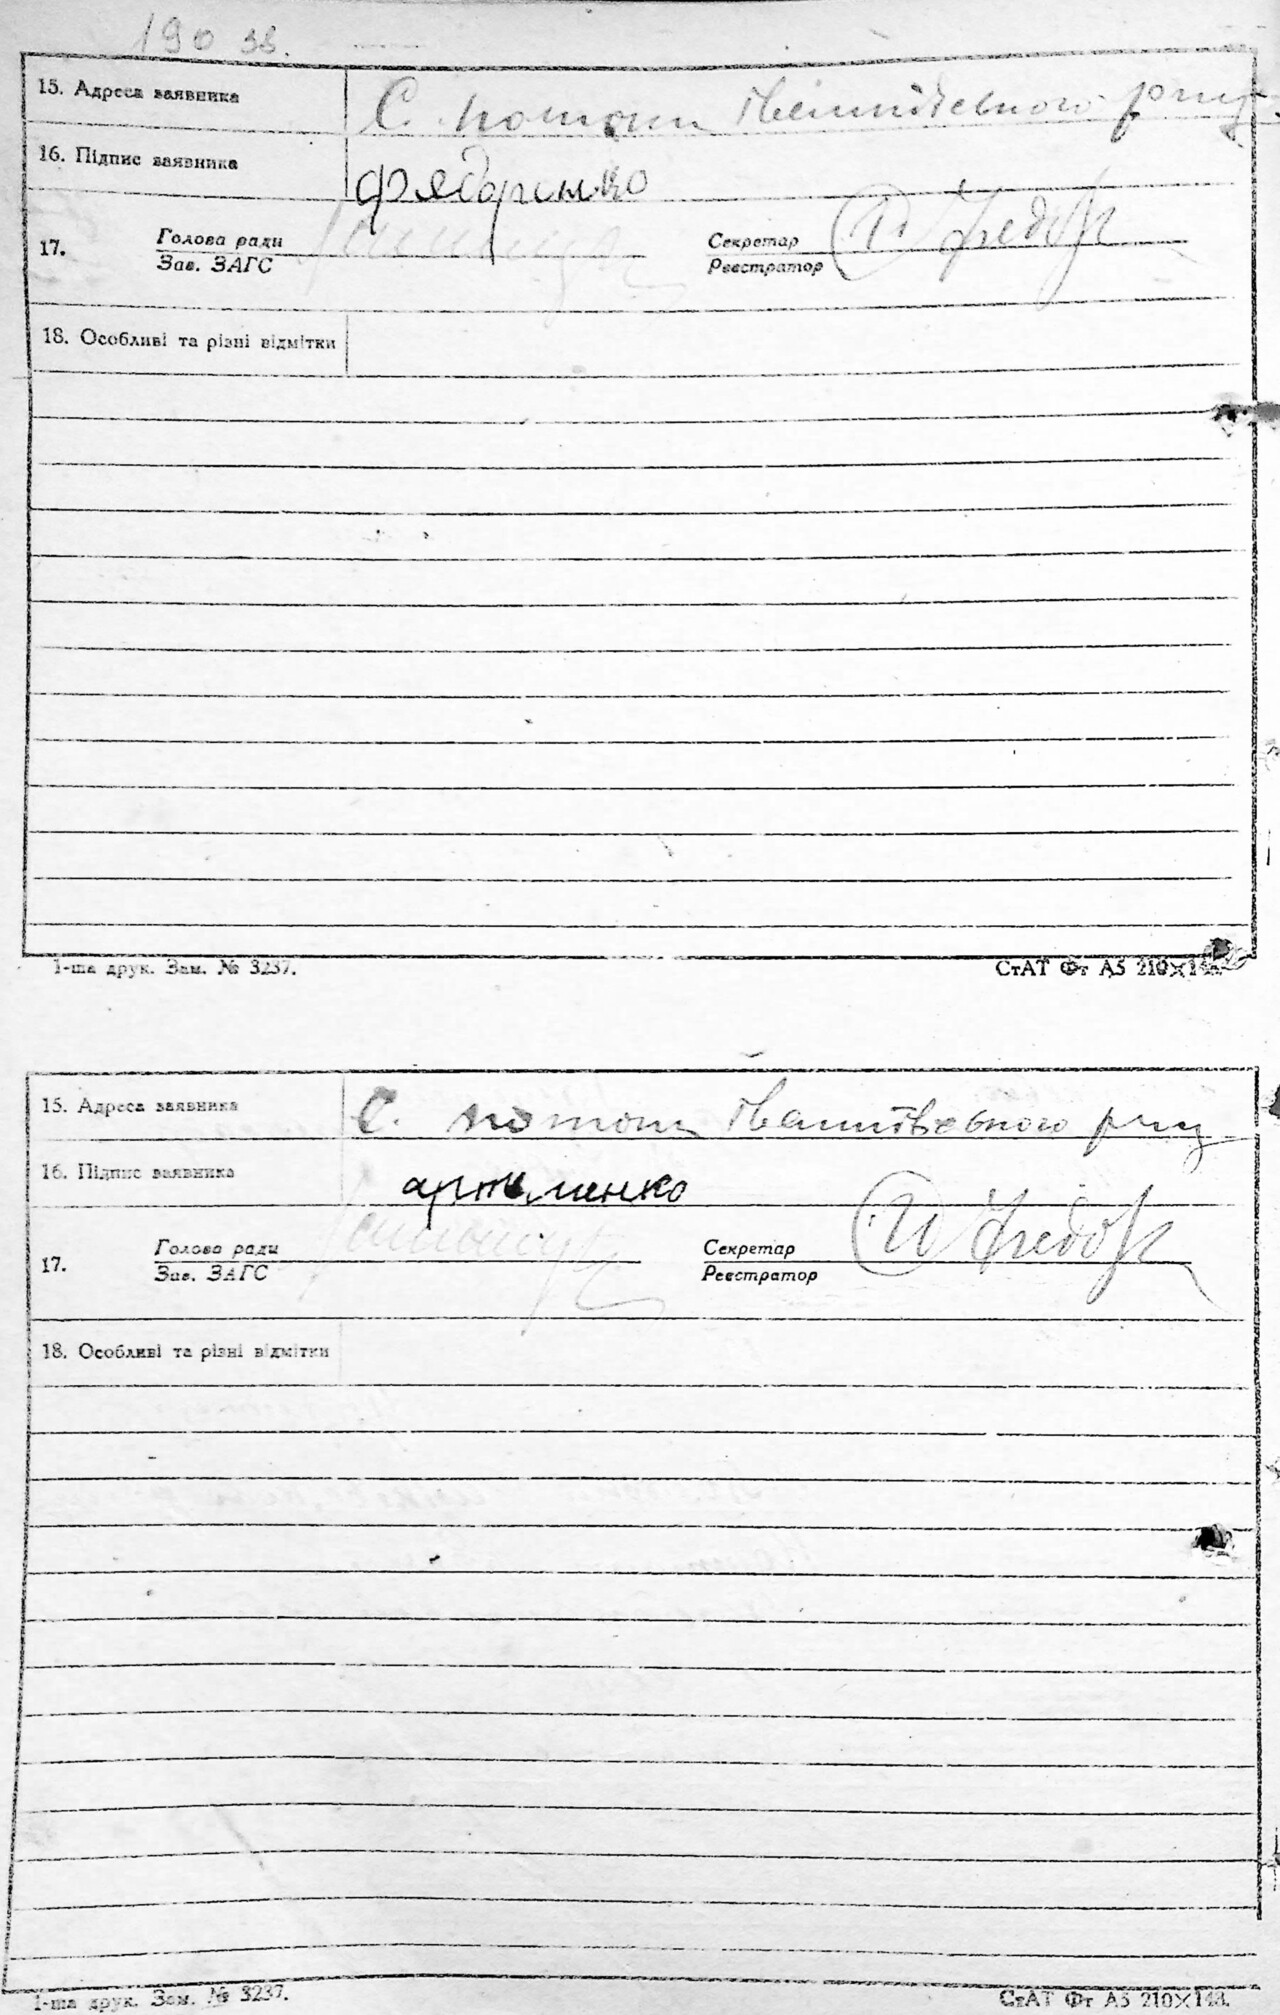 190 зв.
15. Адреса заявника С. потоки
16. Підпис заявника Фядоренко
17. Голова ради Секретар
Зав. ЗАГС Реєстратор
18. Особливі та різні відмітки
1-ша друк. Зам. № 3237. СтАТ Фт А5 210×148.
15. Адреса заявника С. потоки
16. Підпис заявника артеменко
17. Голова ради Секретар
Зав. ЗАГС Реєстратор
18. Особливі та різні відмітки
1-ша друк. Зам. № 3237. СтАТ Фт А5 210×148.